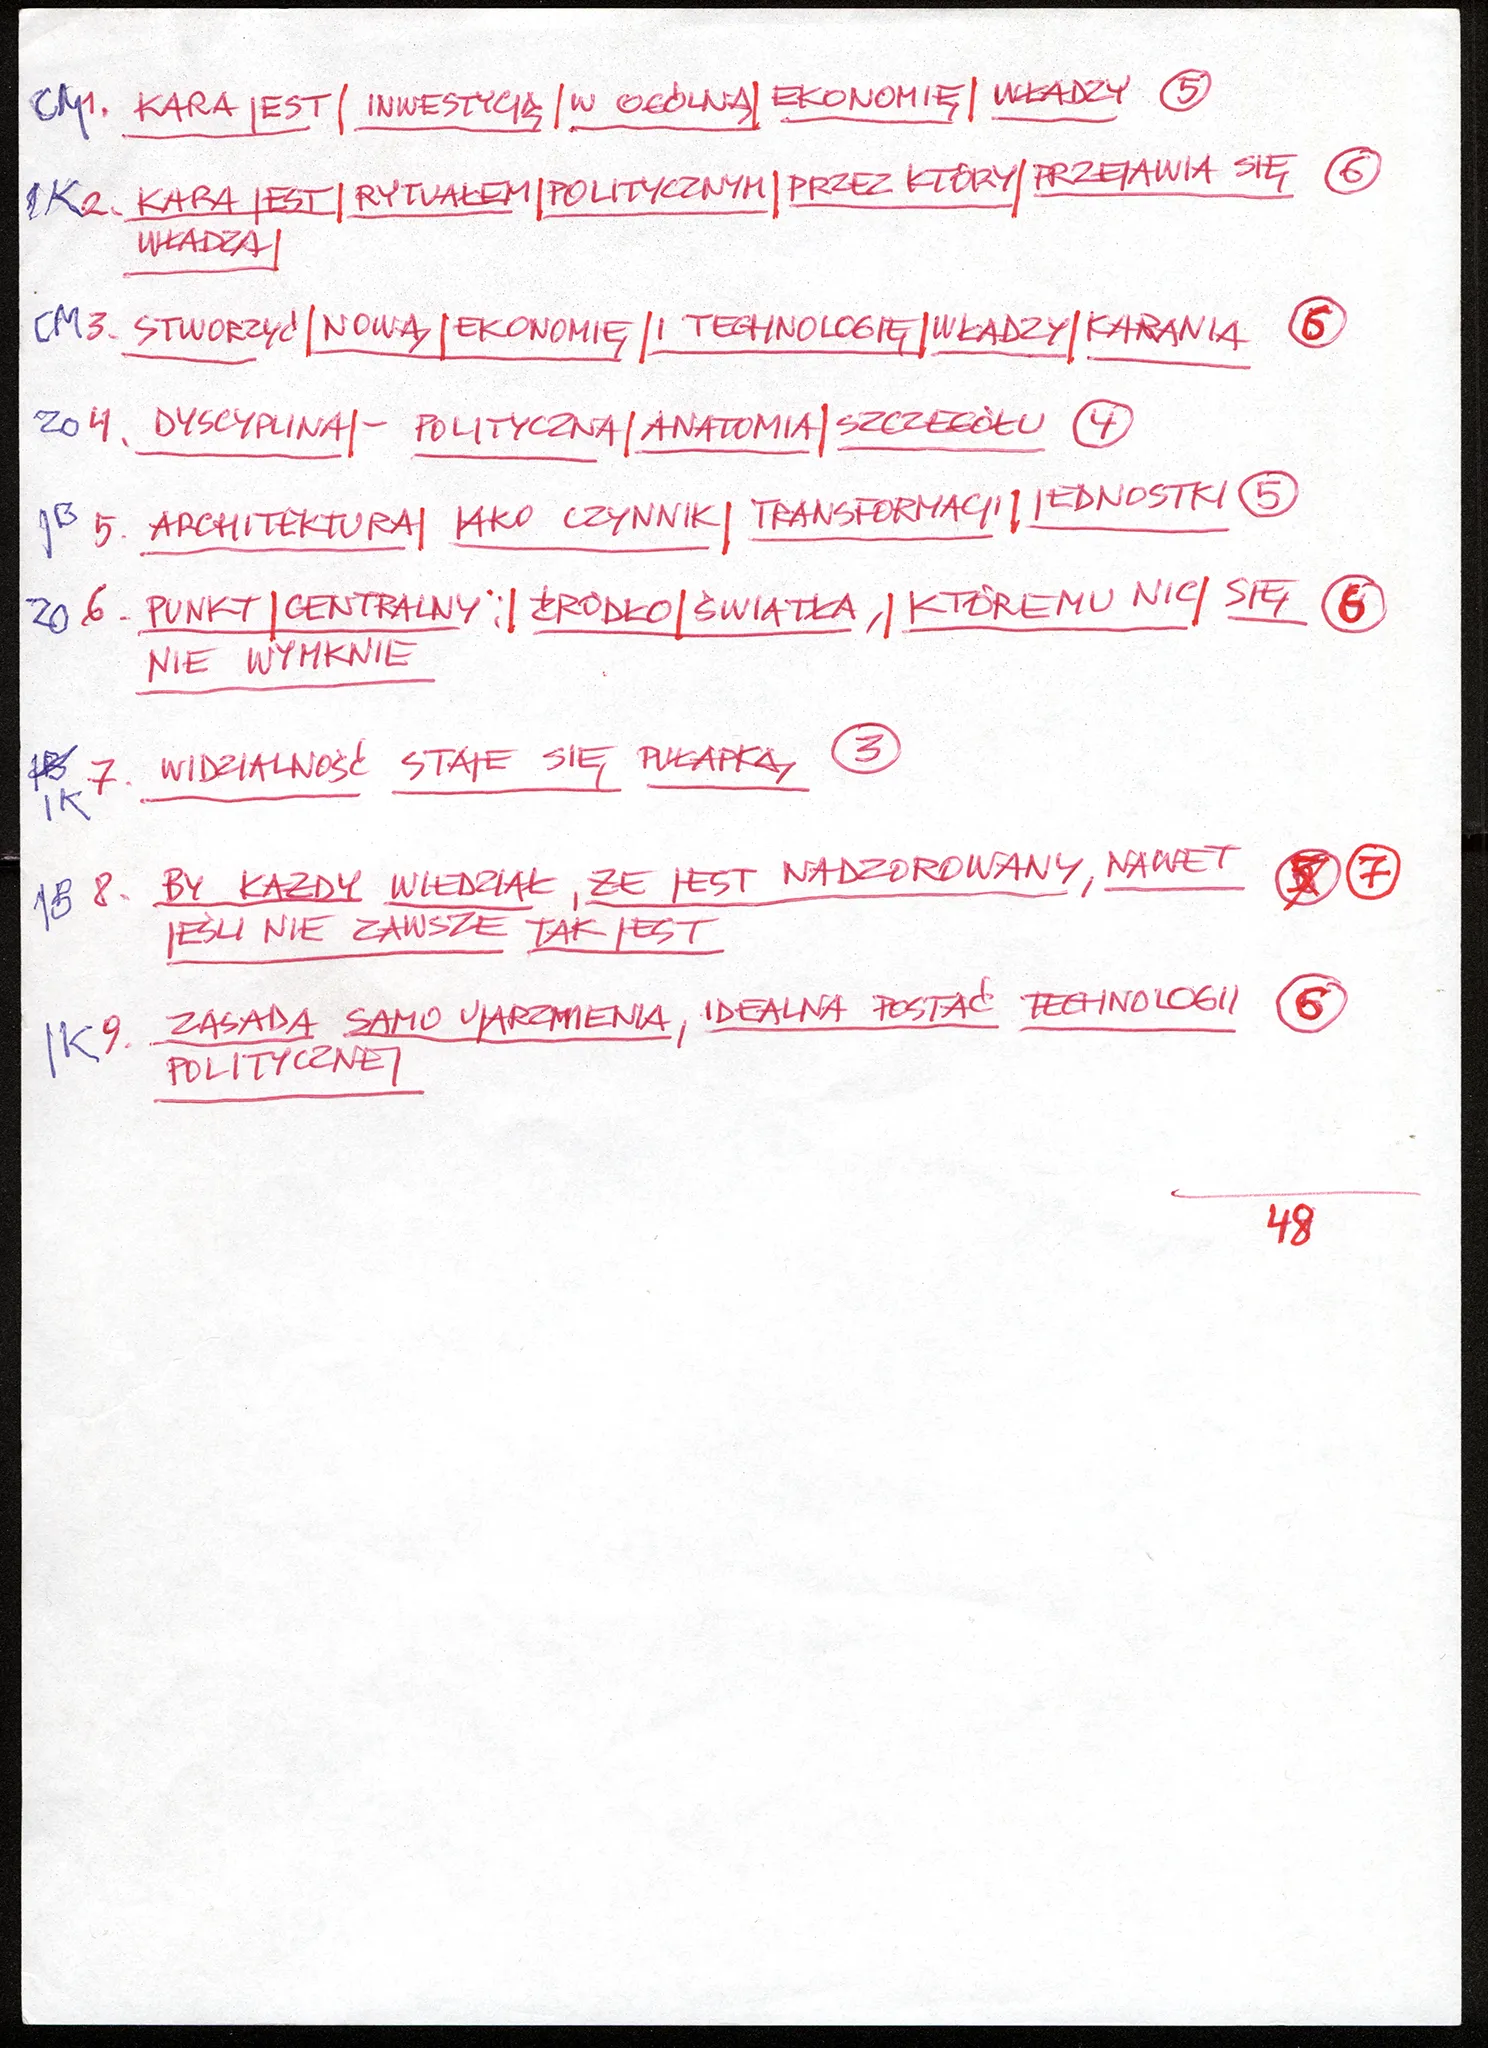 CM 1. KARA JEST | INWESTYCJĄ | W OGÓLNĄ | EKONOMIĘ | WŁADZY 5
IK 2. KARA JEST | RYTUAŁEM | POLITYCZNYM | PRZEZ KTÓRY | PRZEJAWIA SIĘ 6
WŁADZA |
CM 3. STWORZYĆ | NOWĄ | EKONOMIĘ | I TECHNOLOGIĘ | WŁADZY | KARANIA 6
ZO 4. DYSCYPLINA | - POLITYCZNA | ANATOMIA | SZCZEGÓŁU 4
JB 5. ARCHITEKTURA | JAKO CZYNNIK | TRANSFORMACJI | JEDNOSTKI 5
ZO 6. PUNKT | CENTRALNY : | ŹRÓDŁO | ŚWIATŁA, | KTÓREMU NIC | SIĘ 6
NIE WYMKNIE
7. WIDZIALNOŚĆ STAJE SIĘ PUŁAPKĄ 3
IK
JB 8. BY KAŻDY WIEDZIAŁ, ŻE JEST NADZOROWANY, NAWET 7
JEŚLI NIE ZAWSZE TAK JEST
IK 9. ZASADA SAMO UJARZMIENIA, IDEALNA POSTAĆ TECHNOLOGII 6
POLITYCZNEJ
48